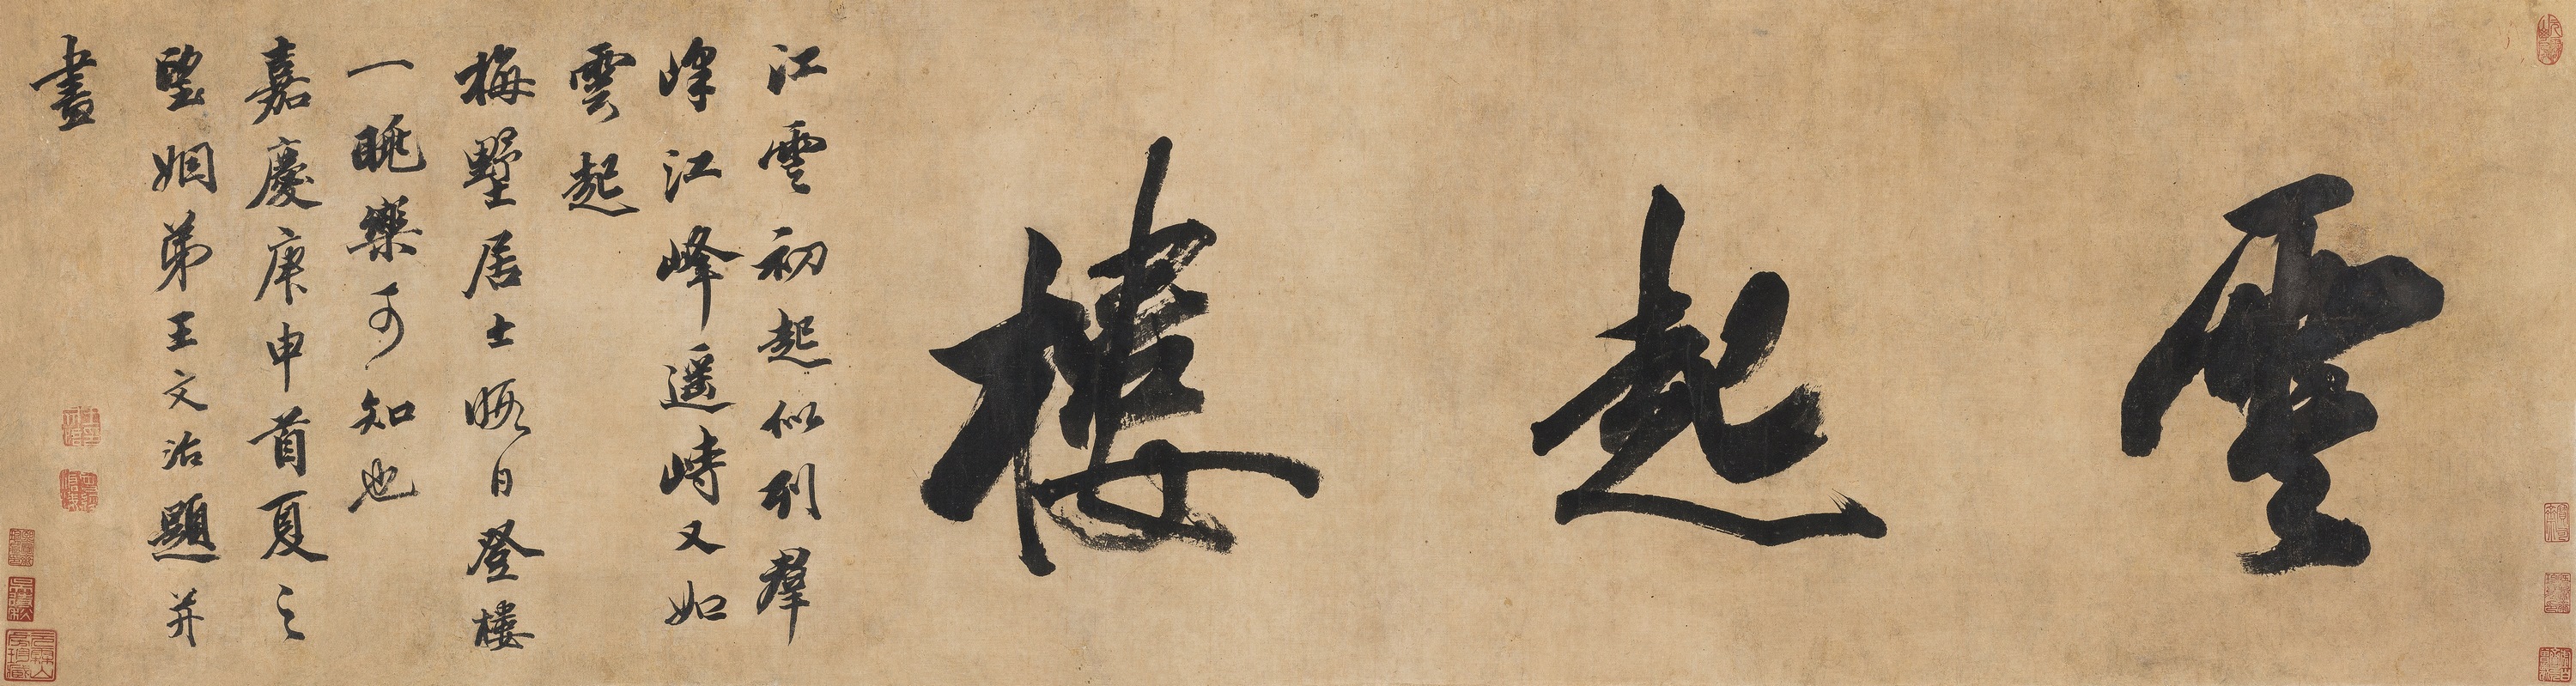 雲起樓
江雲初起似列羣
峰江峰遥峙又如
雲起
梅墅居士暇日登樓
一眺樂可知也
嘉慶庚申首夏之
望姻弟王文治題并
書